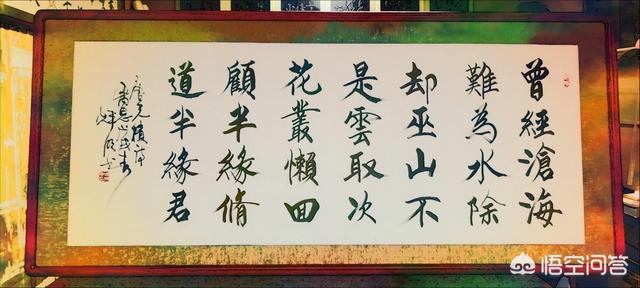 曾經滄海
難為水除
却巫山不
是雲取次
花叢懶回
顧半緣脩
道半緣君
悟空问答